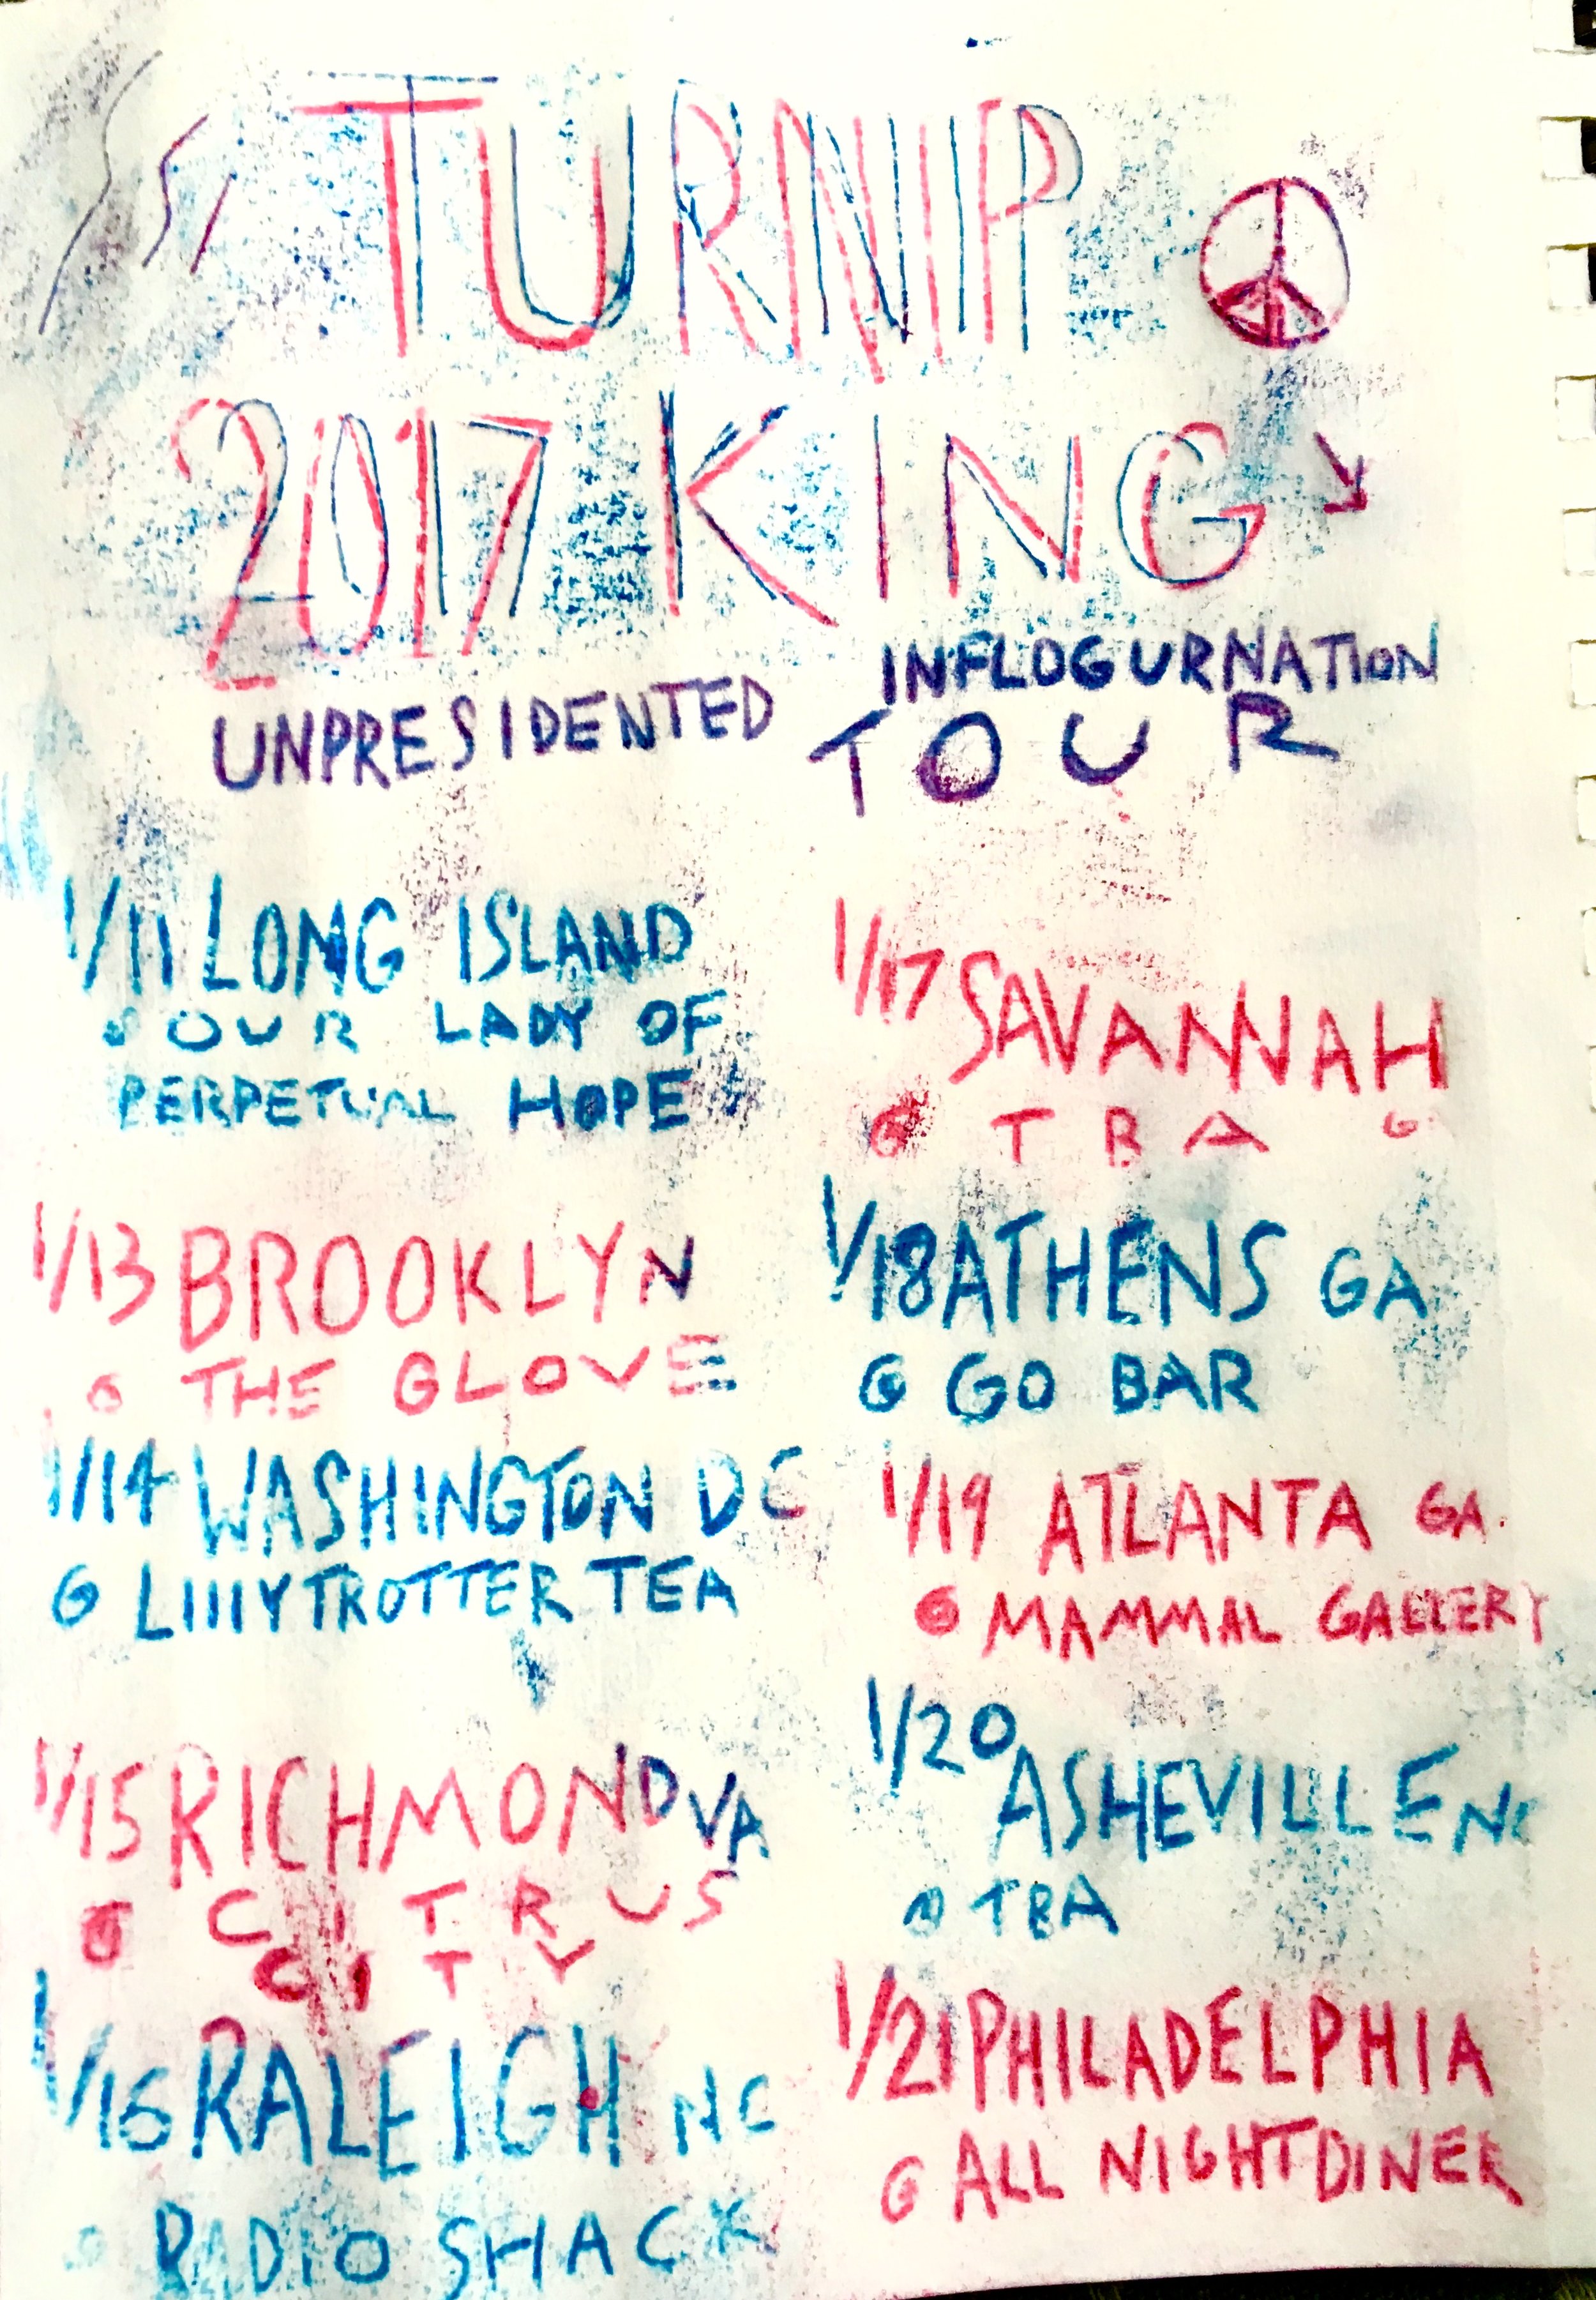 TURNIP
2017 KING
UNPRESIDENTED
INFLOGURNATION
TOUR
1/11 LONG ISLAND
@ OUR LADY OF
PERPETUAL HOPE
1/13 BROOKLYN
@ THE GLOVE
1/14 WASHINGTON DC
@ LIIIYTROTTER TEA
1/15 RICHMOND VA
@ CITRUS
CITY
1/16 RALEIGH NC
@ RADIO SHACK
1/17 SAVANNAH
@ TBA @
1/18 ATHENS GA
@ GO BAR
1/19 ATLANTA GA.
@ MAMMAL GALLERY
1/20
ASHEVILLE NC
@ TBA
1/21 PHILADELPHIA
@ ALL NIGHT DINER